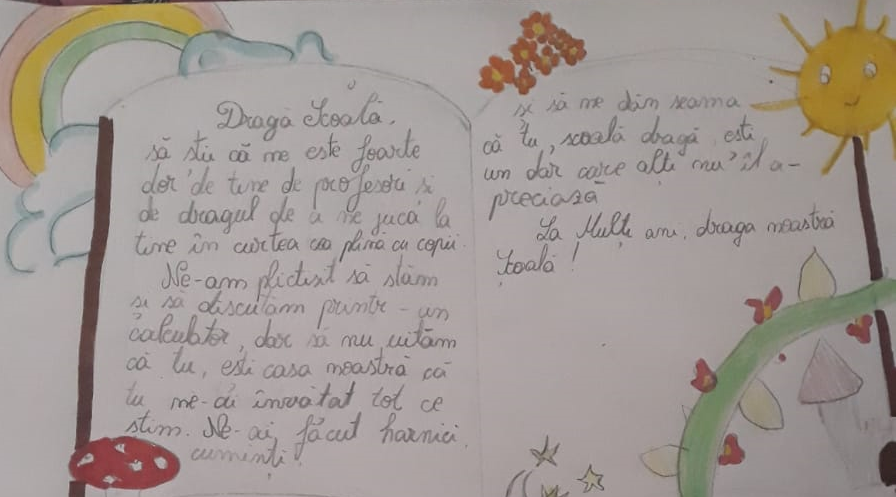 Dragă Școală,
să știi că ne este foarte
dor de tine de profesori și
de dragul de a ne juca la
tine în curtea cea plină cu copii.
Ne-am plictisit să stăm
și să discutăm printr-un
calculator, dar să nu uităm
că tu, ești casa noastră că
tu ne-ai învățat tot ce
știm. Ne-ai făcut harnici,
cuminți
și să ne dăm seama
că tu, școală dragă ești
un dar care alți nu îl a-
preciază
La Mulți ani, draga noastră
Școală!